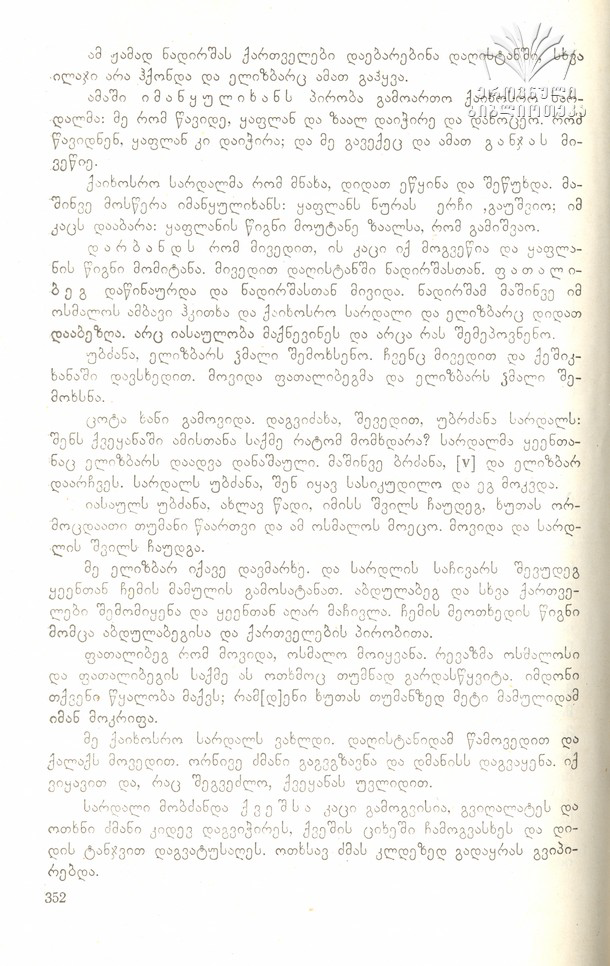 ამ ჟამად ნადირშას ქართველები დაებარებინა დაღისტანში, სხვა
ილაჯი არა ჰქონდა და ელიზბარც ამათ გაჰყვა.
ამაში იმანყულიხანს პირობა გამოართო ქაიხოსრო სარ-
დალმა: მე რომ წავიდე, ყაფლან და ზაალ დაიჭირე და დახოცეო. რომ
წავიდნენ, ყაფლან კი დაიჭირა; და მე გავექეც და ამათ განჯას მი-
ვეწიე.
ქაიხოსრო სარდალმა რომ მნახა, დიდათ ეწყინა და შეწუხდა. მა-
შინვე მოსწერა იმანყულიხანს: ყაფლანს ნურას ერჩი ,გაუშვიო; იმ
კაცს დააბარა: ყაფლანის წიგნი მოუტანე ზაალსა, რომ გამიშვაო.
დარბანდს რომ მივედით, ის კაცი იქ მოგვეწია და ყაფლა-
ნის წიგნი მომიტანა. მივედით დაღისტანში ნადირშასთან. ფათალი-
ბეგ დაწინაურდა და ნადირშასთან მივიდა. ნადირშამ მაშინვე იმ
ოსმალოს ამბავი ჰკითხა და ქაიხოსრო სარდალი და ელიზბარც დიდათ
დააბეზღა. არც იასაულობა მაქნევინეს და არცა რას შემეპოვნენო.
უბძანა, ელიზბარს ჴმალი შემოხსენო. ჩვენც მივედით და ქეშიკ-
ხანაში დავსხედით. მოვიდა ფათალიბეგმა და ელიზბარს ჴმალი შე-
მოხსნა.
ცოტა ხანი გამოვიდა. დაგვიძახა, შევედით, უბრძანა სარდალს:
შენს ქვეყანაში ამისთანა საქმე რატომ მომხდარა? სარდალმა ყეენთა-
ნაც ელიზბარს დაადვა დანაშაული. მაშინვე ბრძანა, [v] და ელიზბარ
დაარჩვეს. სარდალს უბძანა, შენ იყავ სასიკუდილო და ეგ მოკვდა.
იასაულს უბძანა, ახლავ წადი, იმისს შვილს ჩაუდეგ, ხუთას ორ-
მოცდაათი თუმანი წაართვი და ამ ოსმალოს მოეცო. მოვიდა და სარდ-
ლის შვილს ჩაუდგა.
მე ელიზბარ იქავე დავმარხე. და სარდლის საჩივარს შევუდეგ
ყეენთან ჩემის მამულის გამოსატანათ. აბდულაბეგ და სხვა ქართვე-
ლები შემომიყენა და ყეენთან აღარ მაჩივლა. ჩემის მეოთხედის წიგნი
მომცა აბდულაბეგისა და ქართველების პირობითა.
ფათალიბეგ რომ მოვიდა, ოსმალო მოიყვანა. რევაზმა ოსმალოსი
და ფათალიბეგის საქმე ას ოთხმოც თუმნად გარდასწყვიტა. იმდონი
თქვენი წყალობა მაქვს; რამ[დ]ენი ხუთას თუმანზედ მეტი მამულიდამ
იმან მოკრიფა.
მე ქაიხოსრო სარდალს ვახლდი. დაღისტანიდამ წამოვედით და
ქალაქს მოვედით. ორნივე ძმანი გაგვგზავნა და დმანისს დაგვაყენა. იქ
ვიყავით და, რაც შეგვეძლო, ქვეყანას უვლიდით.
სარდალი მობძანდა ქვეშსა კაცი გამოგვისია, გვიღალატეს და
ოთხნი ძმანი კიდევ დაგვიჭირეს, ქვეშის ციხეში ჩამოგვასხეს და დი-
დის ტანჯვით დაგვატუსაღეს. ოთხსავ ძმას კლდეზედ გადაყრას გვიპი-
რებდა.
352
ეროვნული
ბიბლიოთეკა